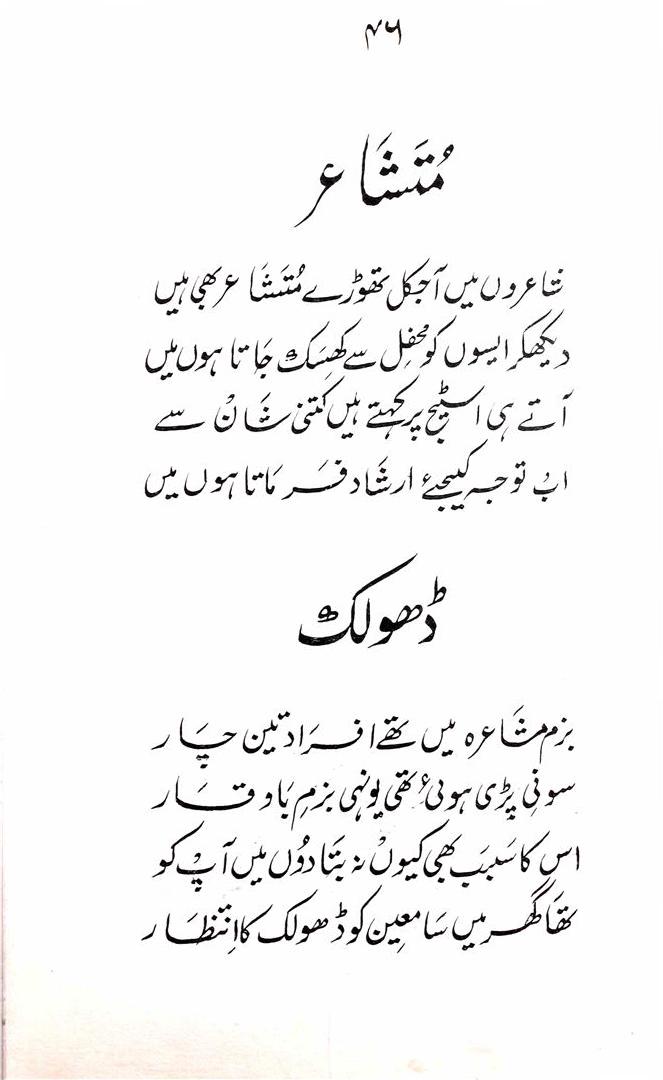 ۴۶
مُتَشَاعر
شاعروں میں آجکل تھوڑے مُتَشَاعر بھی ہیں
دیکھکر ایسوں کو محفِل سے کھِسَک جَاتا ہوں میں
آتے ہی اسٹیج پر کہتے ہیں کِتنی شَانْ سے
ابْ توجہ کیجئے ارشَاد فرمَاتا ہوں میں
ڈھولک
بزم مشَاعرہ میں تھے افراد تین چَار
سونِی پڑی ہوئی تھی یونہی بزمِ بَاوقَار
اس کا سَبَبَ بھی کیوں نہ بتَا دُوں میں آپ کو
تھَا گھر میں سَامعِین کو ڈھولک کا اِنتظَار